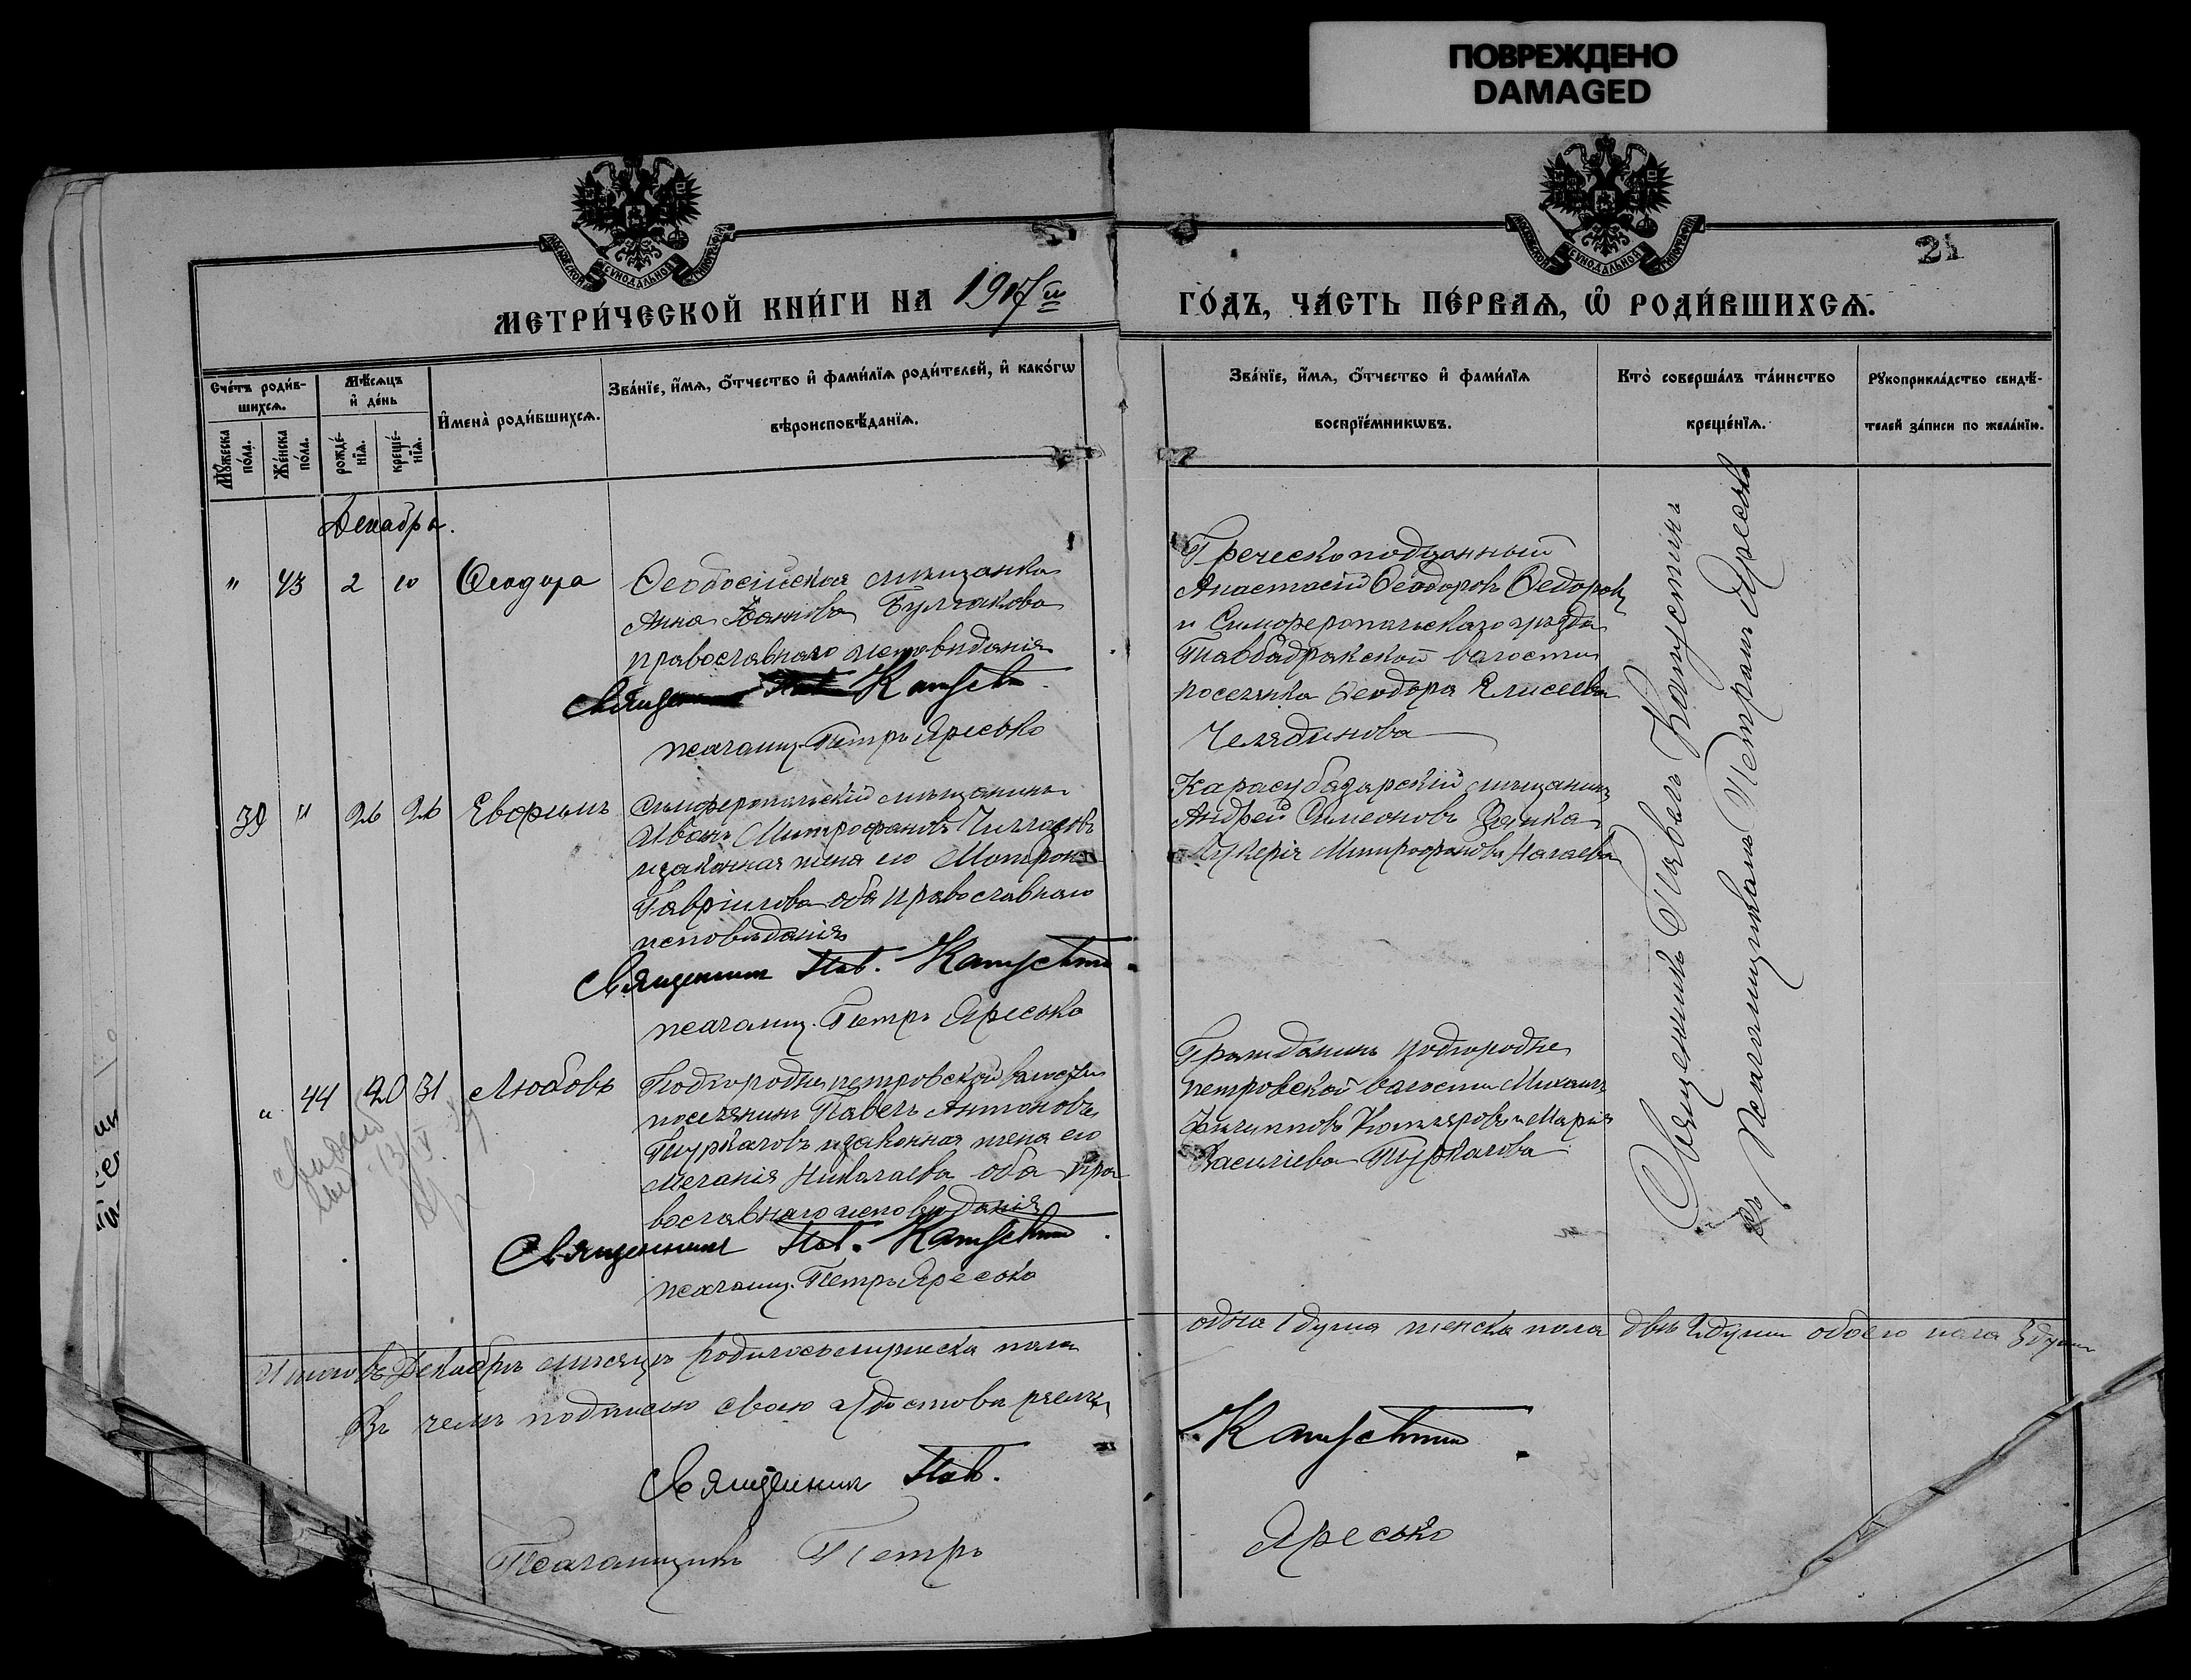 ПОВРЕЖДЕНО
DAMAGED
21
МЕТРИ́ЧЕСКОЙ КНИ́ГИ НА 1917й ГО́ДЪ, ЧА́СТЬ ПЕ́РВАѦ, Ѡ҆ РОДИ́ВШИХСѦ.
Сче́тъ роди́в-
шихсѧ.
Мꙋ́жеска
по́ла.
Же́нска
по́ла.
Мѣ́сѧцъ
и҆ де́нь
рожде́-
нїѧ.
креще́-
нїѧ.
И҆мена̀ роди́вшихсѧ.
Зва́нїе, и҆́мѧ, ѻ҆́тчество и҆ фами́лїѧ роди́телей, и҆ како́гѡ
вѣроисповѣ́данїѧ.
Зва́нїе, и҆́мѧ, ѻ҆́тчество и҆ фами́лїѧ
воспрїе́мникѡвъ.
Кто̀ соверша́лъ та́инство
креще́нїѧ.
Рꙋкоприкла́дство свидѣ́-
телей за́писи по жела́нїю.
Декабрь.
" 43 2 10 Ѳеодора
Ѳеодосійская мѣщанка
Анна Іоаннова Булгакова
православнаго исповѣданія
Священник Пав. Капуст
псаломщ. Петръ Яресько
Греческоподданный
Анастасій Ѳеодоровъ Ѳедоровъ
и Симферопольскаго уѣзда
волости
поселянка Ѳеодора Елисеева
Челядинова
39 " 26 26 Евфимъ
Симферопольскій мѣщанинъ
Иванъ Митрофановъ
и законная жена его Матрона
Гавріилова оба православнаго
исповѣданія
Священник Пав. Капустин
псаломщ. Петръ Яресько
Карасубазарскій мѣщанинъ
Андрей Симеоновъ
Лукерія Митрофанова
" 44 20 31 Любовь
Подгородне петровской волости
поселянинъ Павелъ Антоновъ
и законная жена его
Меланія Николаева оба пра
вославнаго исповѣданія
Священник Пав. Капустин
псаломщ. Петръ Яресько
Гражданинъ Подгородне
петровской волости Михаилъ
Филипповъ и Марія
Васильева
Священникъ Павелъ Капустинъ
съ Псаломщикомъ Петромъ Яресько
Итого въ Декабрѣ мѣсяцѣ родилось мужеска пола одна 1 душа женска пола двѣ 2 души обоего пола 3 души
Въ чемъ подписью своею удостовѣряемъ
Священник Пав. Капустин
Псаломщикъ Петръ Яресько